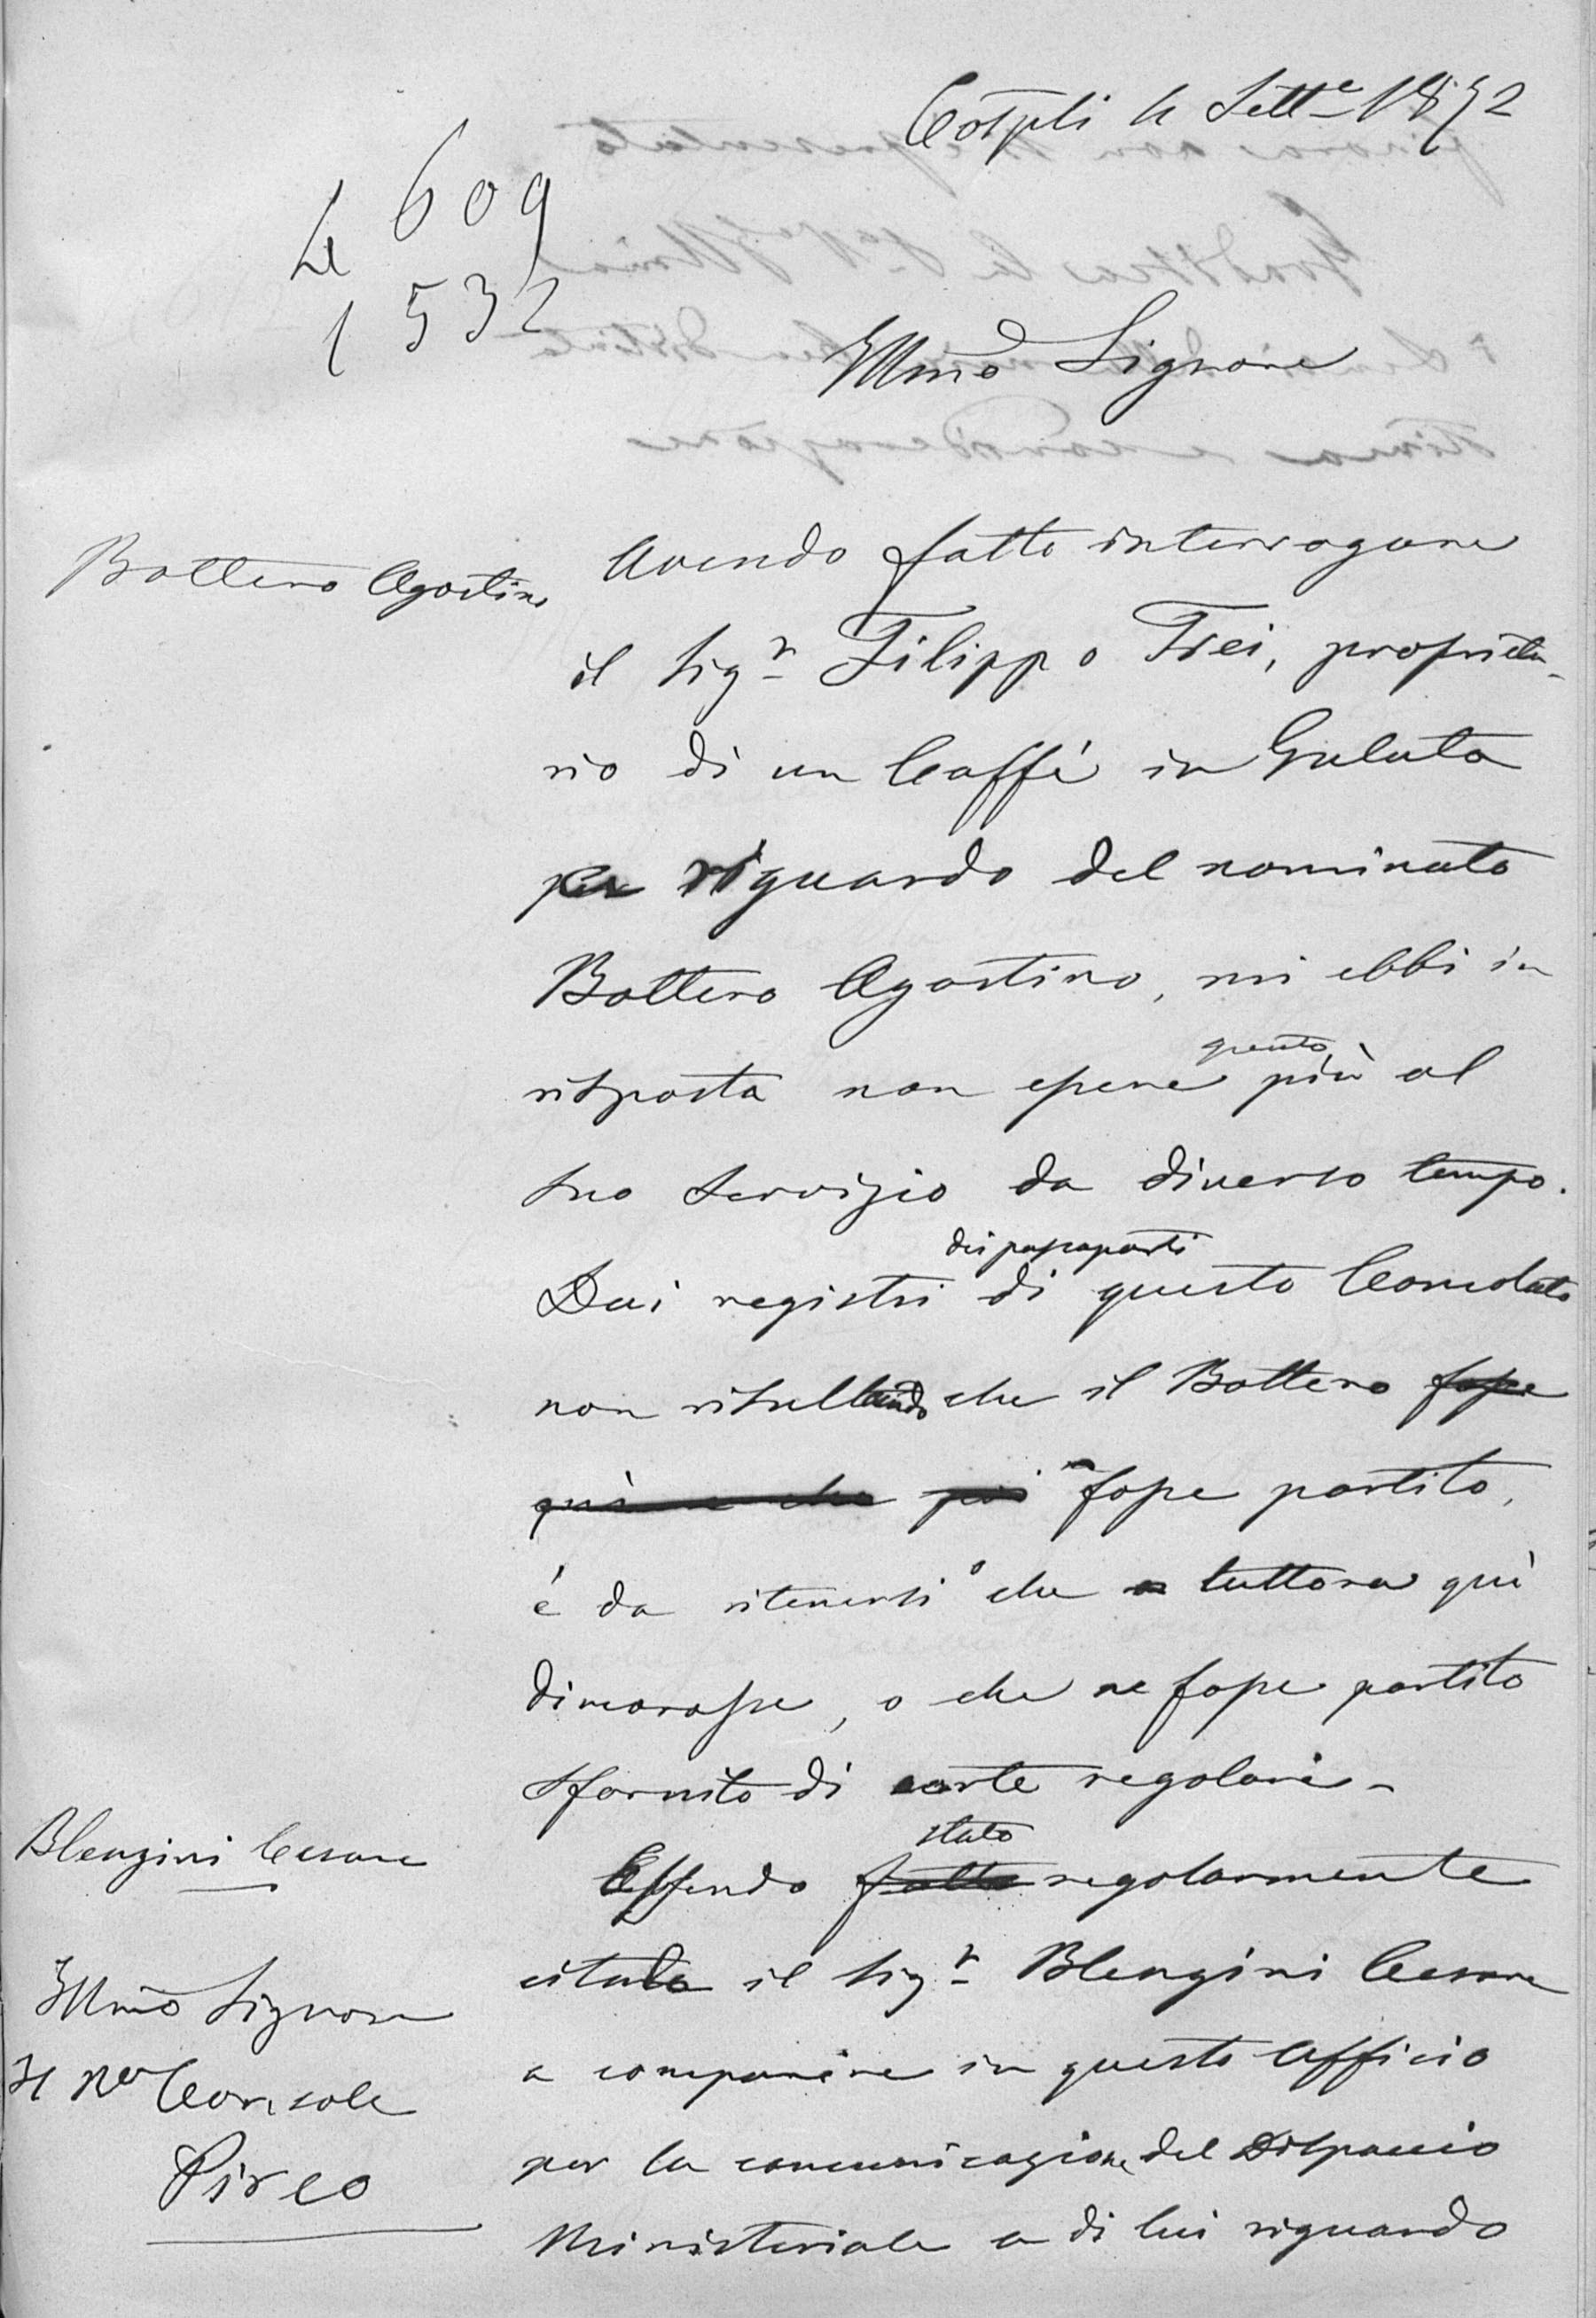 Costpli 4 Sett.e 1872
4 609
1 532
Illmo Signore
Bottero Agostino
Avendo fatto interrogare
il Sigr Filippo Frei, proprieta-
rio di un Caffè in Galata
per riguardo del nominato
Bottero Agostino, mi ebbi in
risposta non essere questo più al
suo servizio da diverso tempo.
Dai registri dei passaporti di questo Consolato
non risultando che il Bottero fosse
fosse partito,
è da ritenersi o che tuttora quì
dimorasse, o che ne fosse partito
sfornito di carte regolari -
Blengini Cesare
Essendo fatto stato regolarmente
citato il Sigr Blengini Cesare
a comparire in questo Ufficio
per la comunicazione del Dispaccio
Ministeriale a di lui riguardo
Illmo Signore
Il Ro Console
Pireo